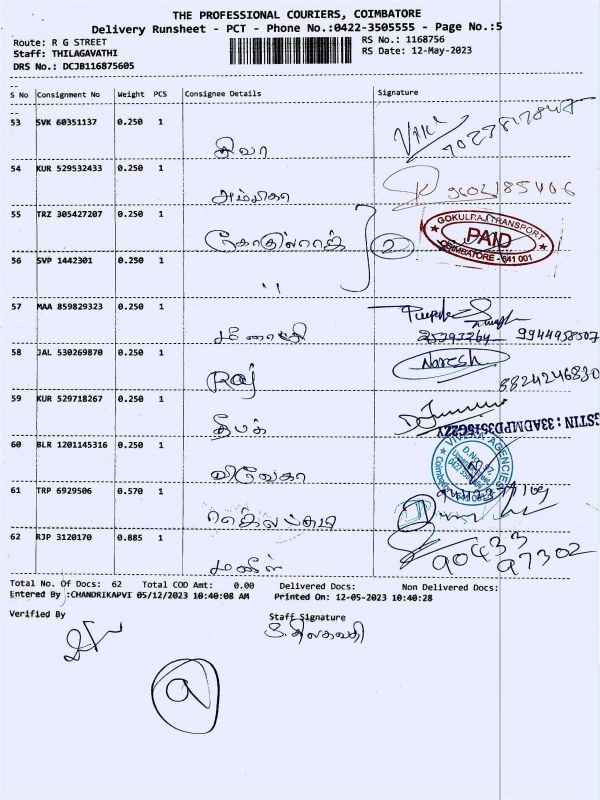 THE PROFESSIONAL COURIERS, COIMBATORE
Delivery Runsheet - PCT - Phone No.:0422-3505555 - Page No.:5
Route: R G STREET
RS No.: 1168756
Staff: THILAGAVATHI
RS Date: 12-May-2023
DRS No.: DCJB116875605
S No Consignment No Weight PCS Consignee Details Signature
53 SVK 60351137 0.250 1
சிவா
54 KUR 529532433 0.250 1
அம்பிகா 9602185406
55 TRZ 305427207 0.250 1
கோகுல்ராஜ் 2
GOKULRAJ TRANSPORT
PAID
COIMBATORE - 641 001
56 SVP 1442301 0.250 1
"
57 MAA 859829323 0.250 1
9944958507
58 JAL 530269870 0.250 1
Raj Naresh
8824246830
59 KUR 529718267 0.250 1
தீபக்
GSTIN : 33ADMPD3515G2ZY
60 BLR 1201145316 0.250 1
விவேகா
AGENCIES
61 TRP 6929506 0.570 1
62 RJP 3120170 0.885 1
90433
97302
Total No. Of Docs: 62 Total COD Amt: 0.00 Delivered Docs: Non Delivered Docs:
Entered By :CHANDRIKAPVI 05/12/2023 10:40:08 AM Printed On: 12-05-2023 10:40:28
Verified By Staff Signature
S. திலகவதி